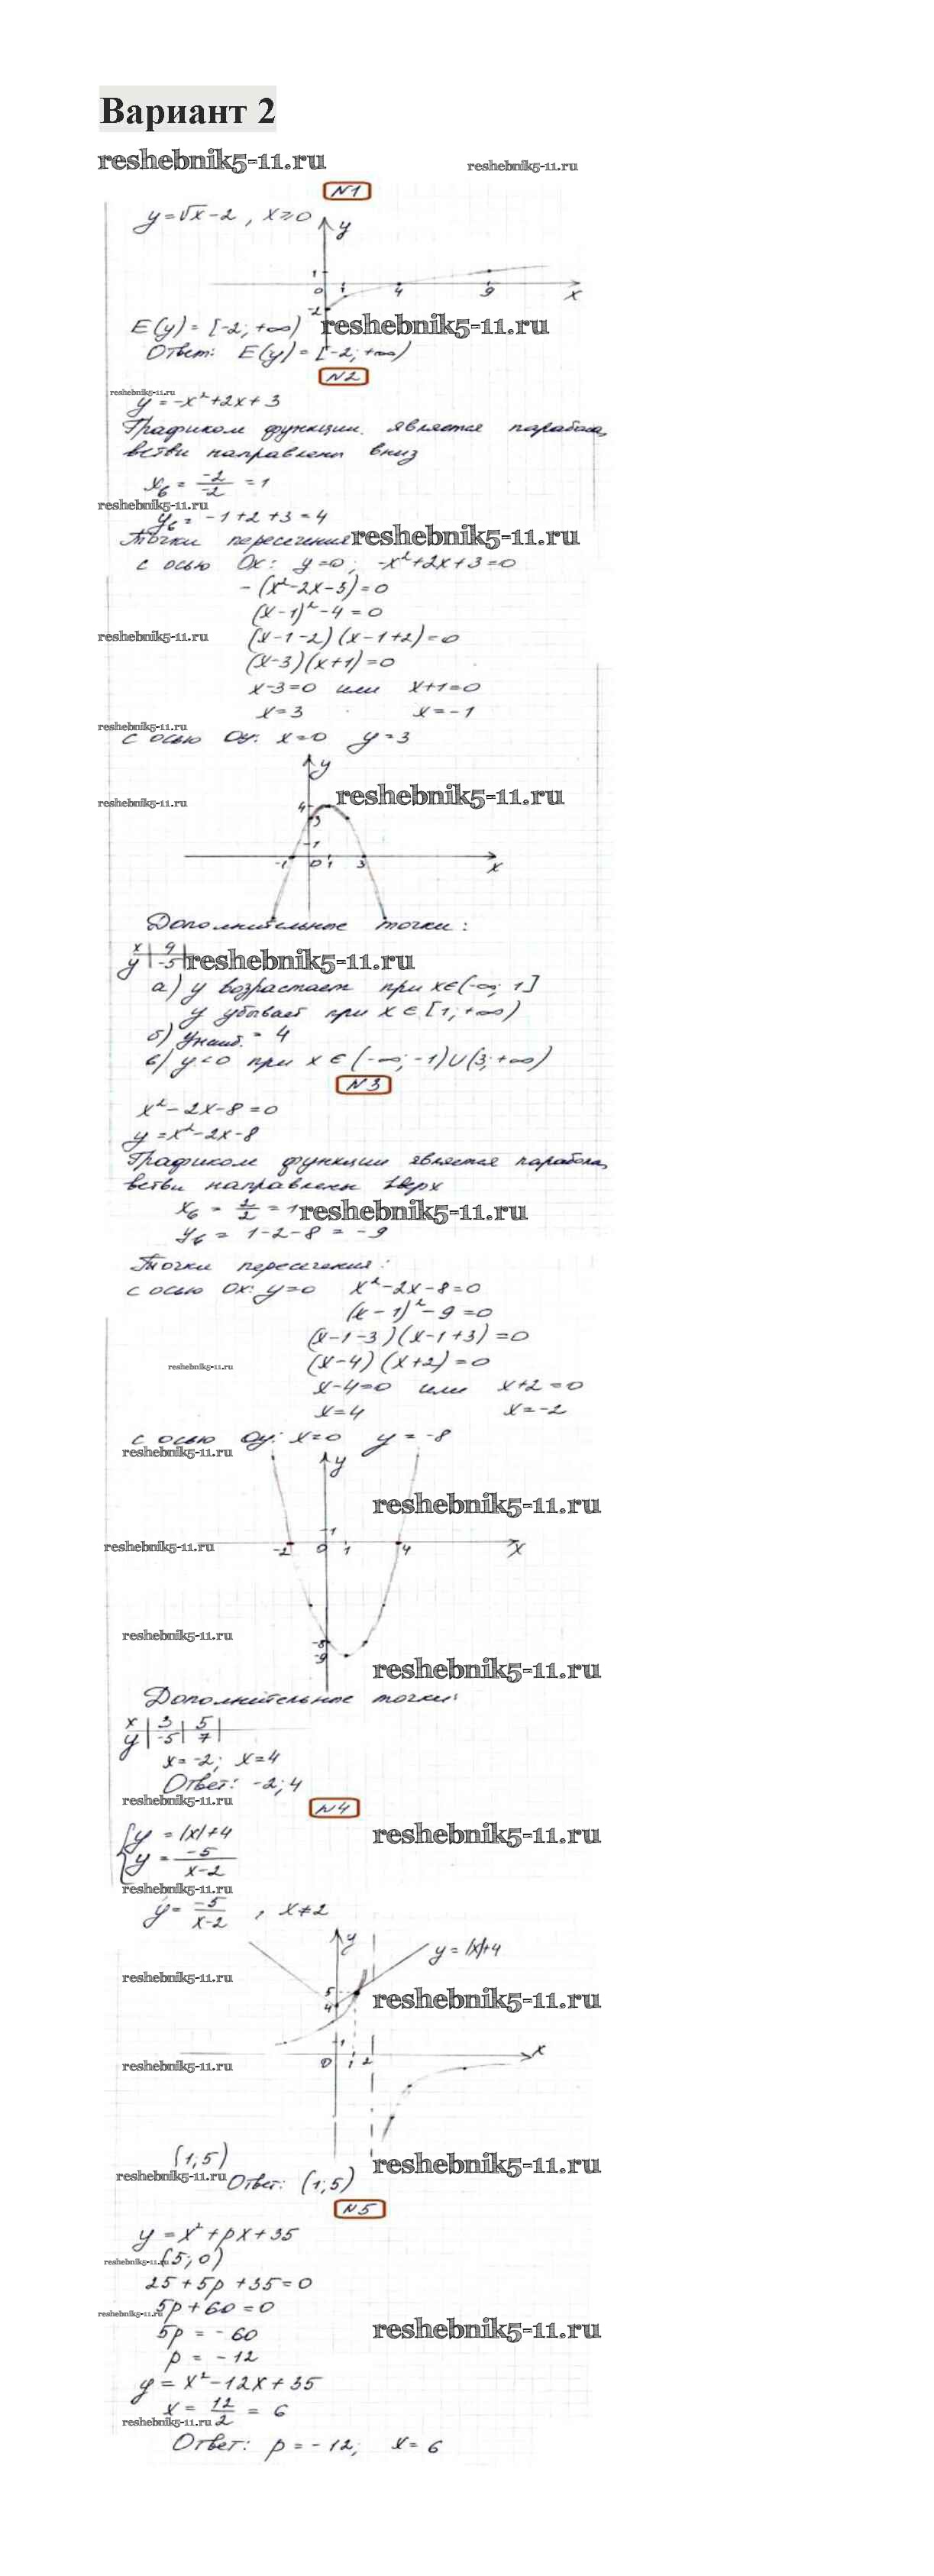 Вариант 2
reshebnik5-11.ru reshebnik5-11.ru
N1
y=√x-2 , x≥0
y
1
0 1 4 9 x
-2
E(y) = [-2; +∞) reshebnik5-11.ru
Ответ: E(y) = [-2; +∞)
N2
reshebnik5-11.ru
y = -x²+2x+3
Графиком функции является парабола,
ветви направлены вниз
x₆ = -2/-2 = 1
reshebnik5-11.ru
y₆ = -1+2+3=4
Точки пересечения reshebnik5-11.ru
с осью Ox: y=0; -x²+2x+3=0
-(x²-2x-3)=0
(x-1)²-4=0
reshebnik5-11.ru (x-1-2)(x-1+2)=0
(x-3)(x+1)=0
x-3=0 или x+1=0
x=3 x=-1
reshebnik5-11.ru
с осью Oy: x=0 y=3
y
reshebnik5-11.ru 4 reshebnik5-11.ru
3
1
-1 0 1 3 x
Дополнительные точки:
x | 4 |
y | -5 | reshebnik5-11.ru
а) y возрастает при x∈(-∞; 1]
y убывает при x∈[1; +∞)
б) yнаиб. = 4
в) y<0 при x∈(-∞; -1)∪(3; +∞)
N3
x²-2x-8=0
y=x²-2x-8
Графиком функции является парабола,
ветви направлены вверх
x₆ = 2/2 = 1 reshebnik5-11.ru
y₆ = 1-2-8 = -9
Точки пересечения:
с осью Ox: y=0 x²-2x-8=0
(x-1)²-9=0
(x-1-3)(x-1+3)=0
reshebnik5-11.ru (x-4)(x+2)=0
x-4=0 или x+2=0
x=4 x=-2
с осью Oy: x=0 y=-8
reshebnik5-11.ru y
reshebnik5-11.ru
1
reshebnik5-11.ru -2 0 1 4 x
reshebnik5-11.ru -8
-9 reshebnik5-11.ru
Дополнительные точки:
x | 3 | 5 |
y | -5 | 7 |
x=-2; x=4
Ответ: -2; 4
reshebnik5-11.ru N4
y = |x|+4 reshebnik5-11.ru
y = -5/x-2
reshebnik5-11.ru
y = -5/x-2 , x≠2
y y=|x|+4
reshebnik5-11.ru
5 reshebnik5-11.ru
4
1 x
reshebnik5-11.ru 0 1 2
(1;5) reshebnik5-11.ru
reshebnik5-11.ru Ответ: (1;5)
N5
y = x²+px+35
reshebnik5-11.ru (5;0)
25+5p+35=0
reshebnik5-11.ru 5p+60=0
5p = -60 reshebnik5-11.ru
p = -12
y = x²-12x+35
x = 12/2 = 6
reshebnik5-11.ru
Ответ: p = -12; x = 6